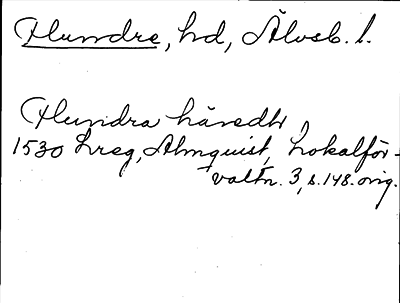 Flundre, hd, Älvsb. l.
Flundra häredh
1530 Lreg, Almquist, Lokalför-
valtn. 3, s. 148. orig.